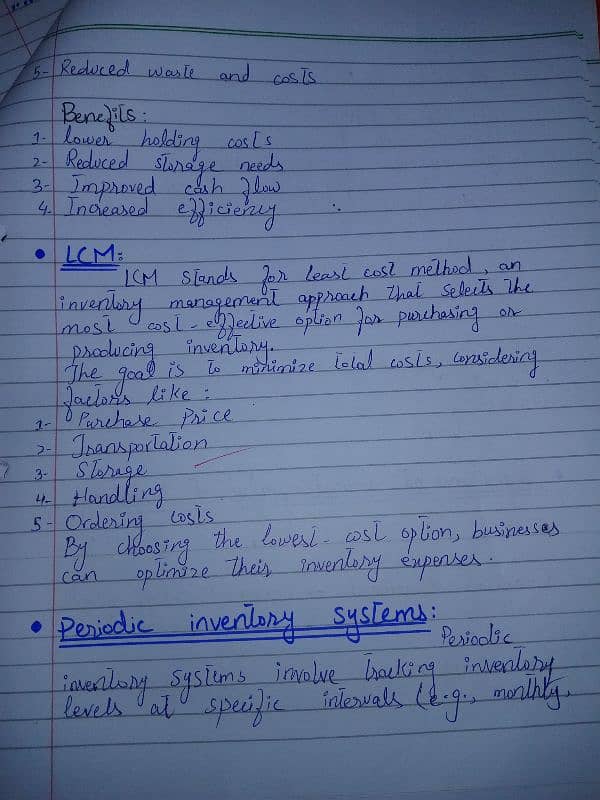 5- Reduced waste and costs
Benefits:
1- lower holding costs
2- Reduced storage needs
3- Improved cash flow
4. Increased efficiency
• LCM:
LCM stands for least cost method, an
inventory management approach that selects the
most cost-effective option for purchasing or
producing inventory.
The goal is to minimize total costs, considering
factors like:
1- Purchase Price
2- Transportation
3- Storage
4- Handling
5- Ordering costs
By choosing the lowest-cost option, businesses
can optimize their inventory expenses.
• Periodic inventory systems:
Periodic
inventory systems involve tracking inventory
levels at specific intervals (e.g., monthly,